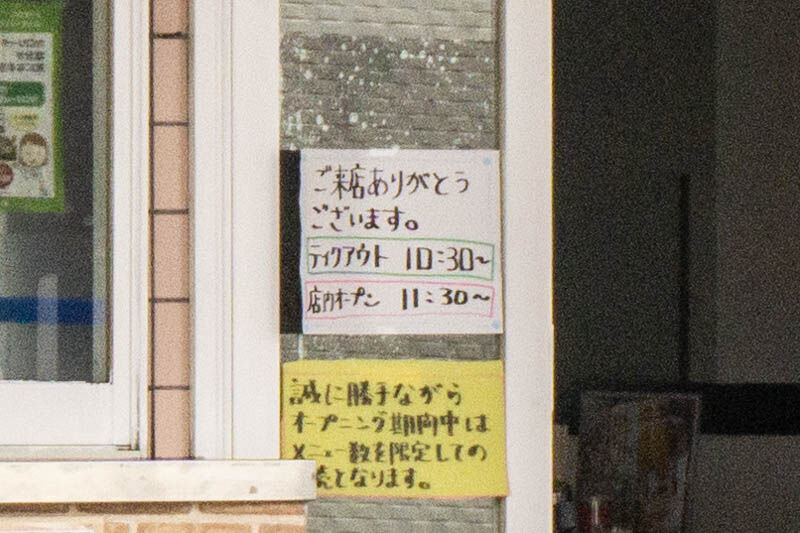 ご来店ありがとう
ございます。
テイクアウト 10:30~
店内オープン 11:30~
誠に勝手ながら
オープニング期間中は
メニュー数を限定しての
売となります。